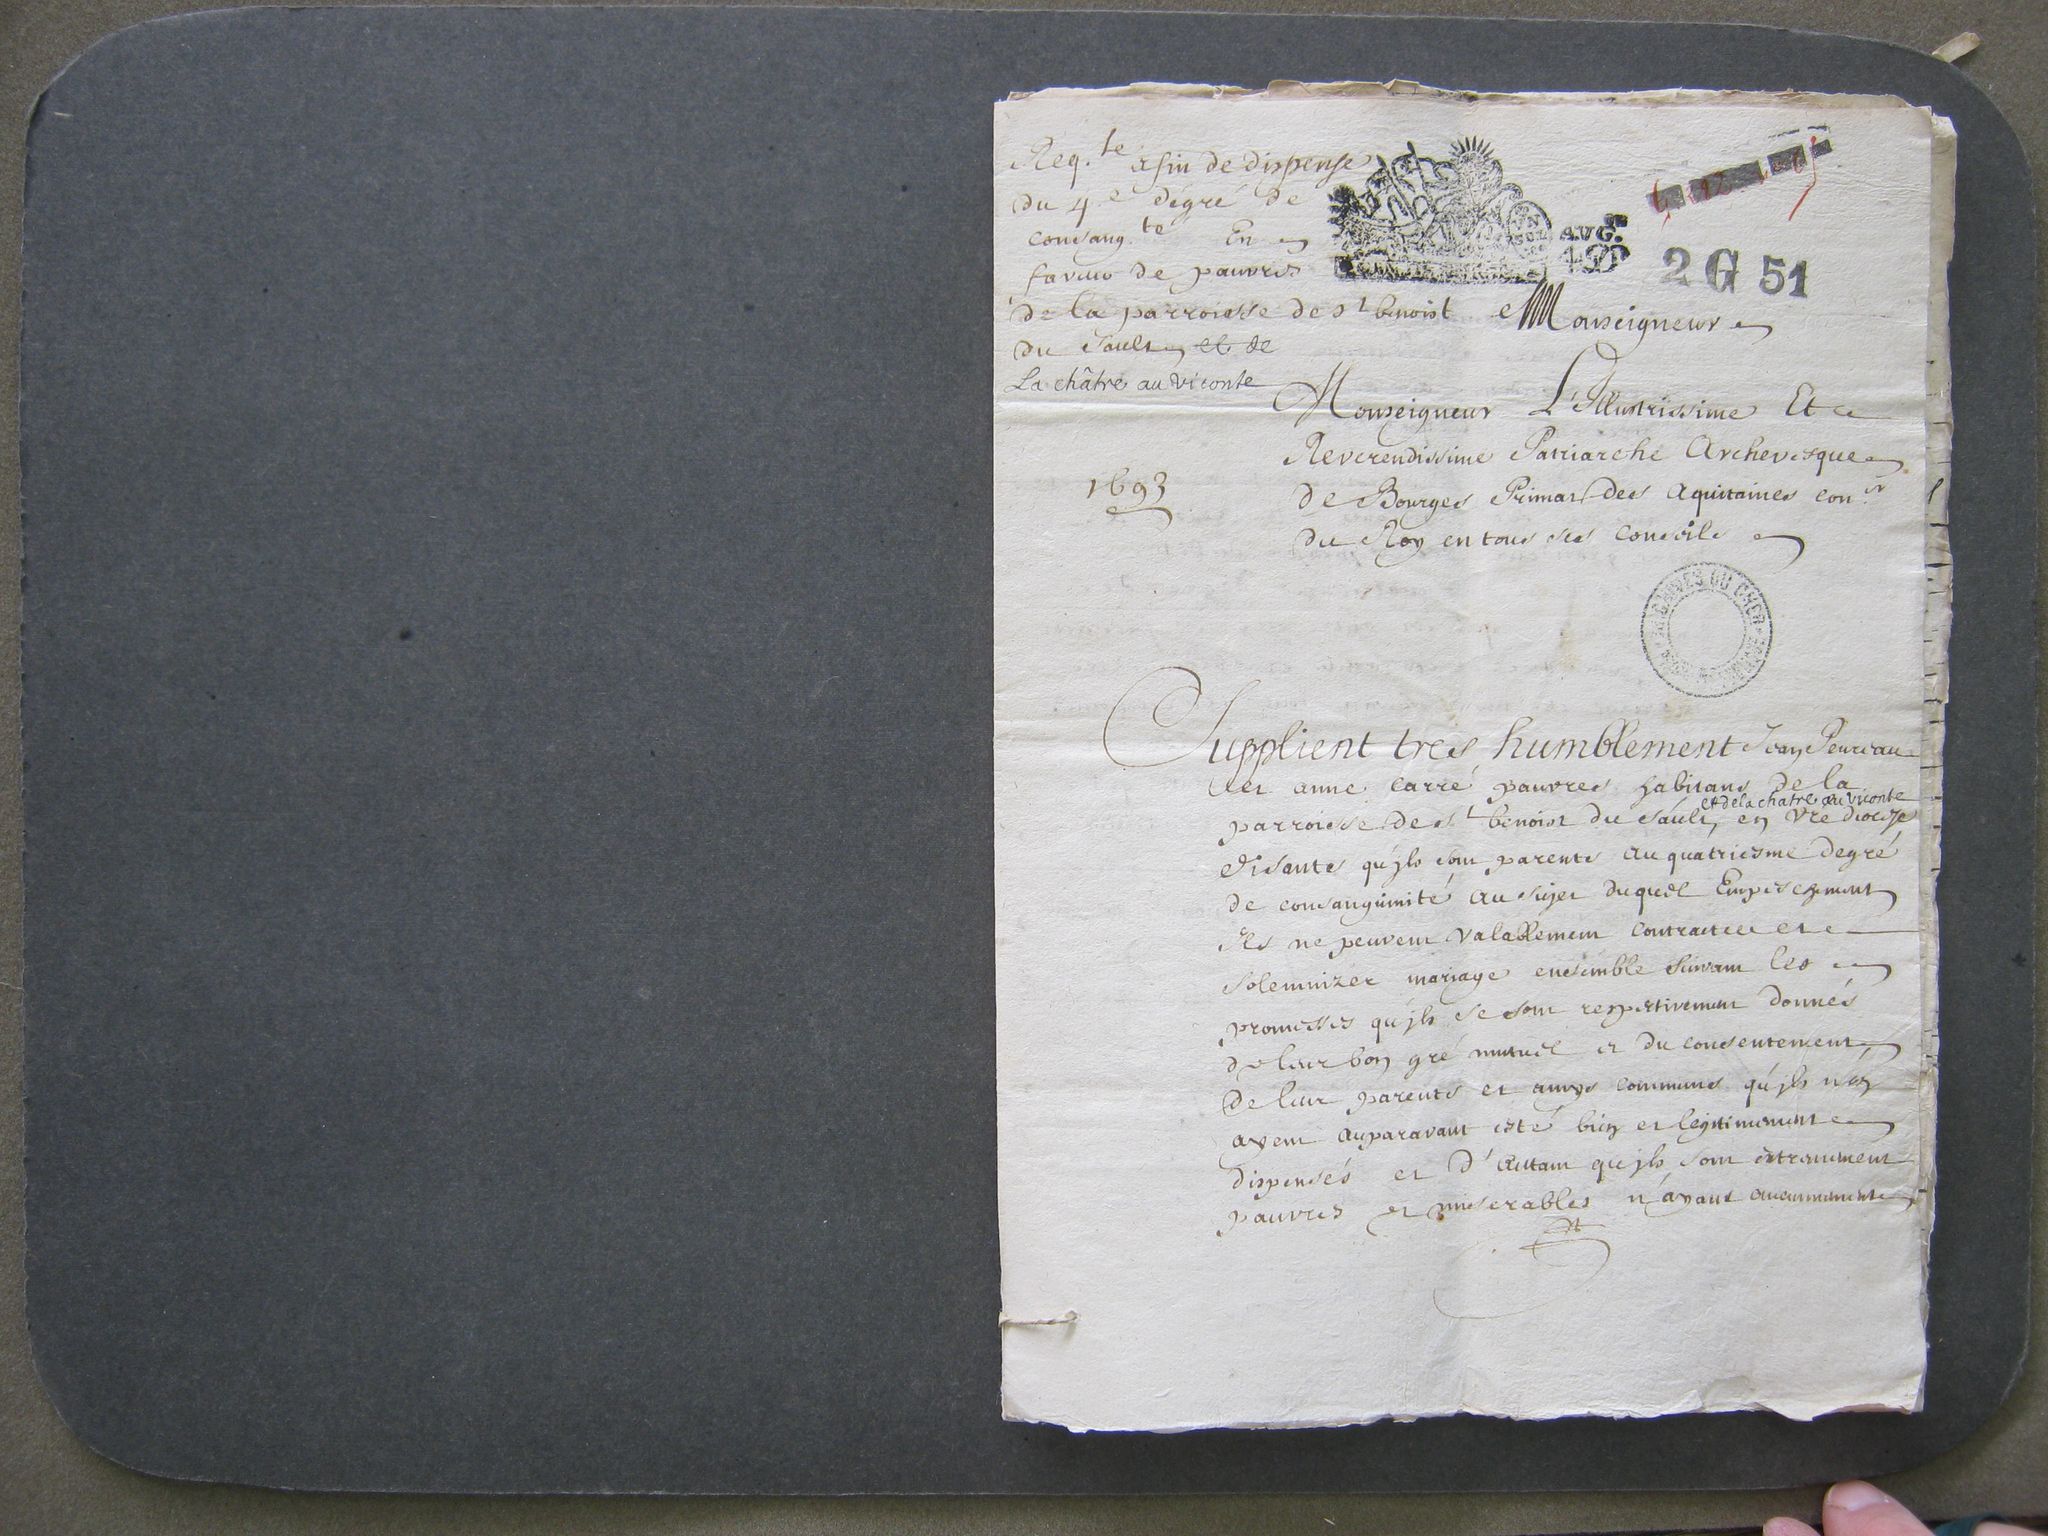 Req.te afin de dispense
du 4e dégré de
consang.té En
faveur de pauvres
de la parroisse de St benoist
du Sault et de
La châtre au viconte
AUG.on
2 G 51
Monseigneur
Monseigneur L'Illustrissime Et
Reverendissime Patriarche Archevesque
de Bourges Primat des Aquitaines con.er
du Roy en tous ses conseils
1693
ARCHIVES DU CHER
Supplient tres humblement Jean Peureau
et anne carré pauvres habitans de la
et de la chatre au viconte
parroisse de St benoist du Sault, en Vre diocese
disants qu'jls sont parents au quatriesme degré
de consanguinité au sujet duquel Empeschement
Ils ne peuvent valablement contracter et
solemnizer mariage ensemble suivant les
promesses qu'jls se sont respectivement donnés
de leur bon gré mutuel et du consentement
de leur parents et amys communs qu'jls n'en
ayent auparavant esté bien et legitimement
dispensés et d'autant qu'jls sont extremement
pauvres et miserables n'ayant aucunement